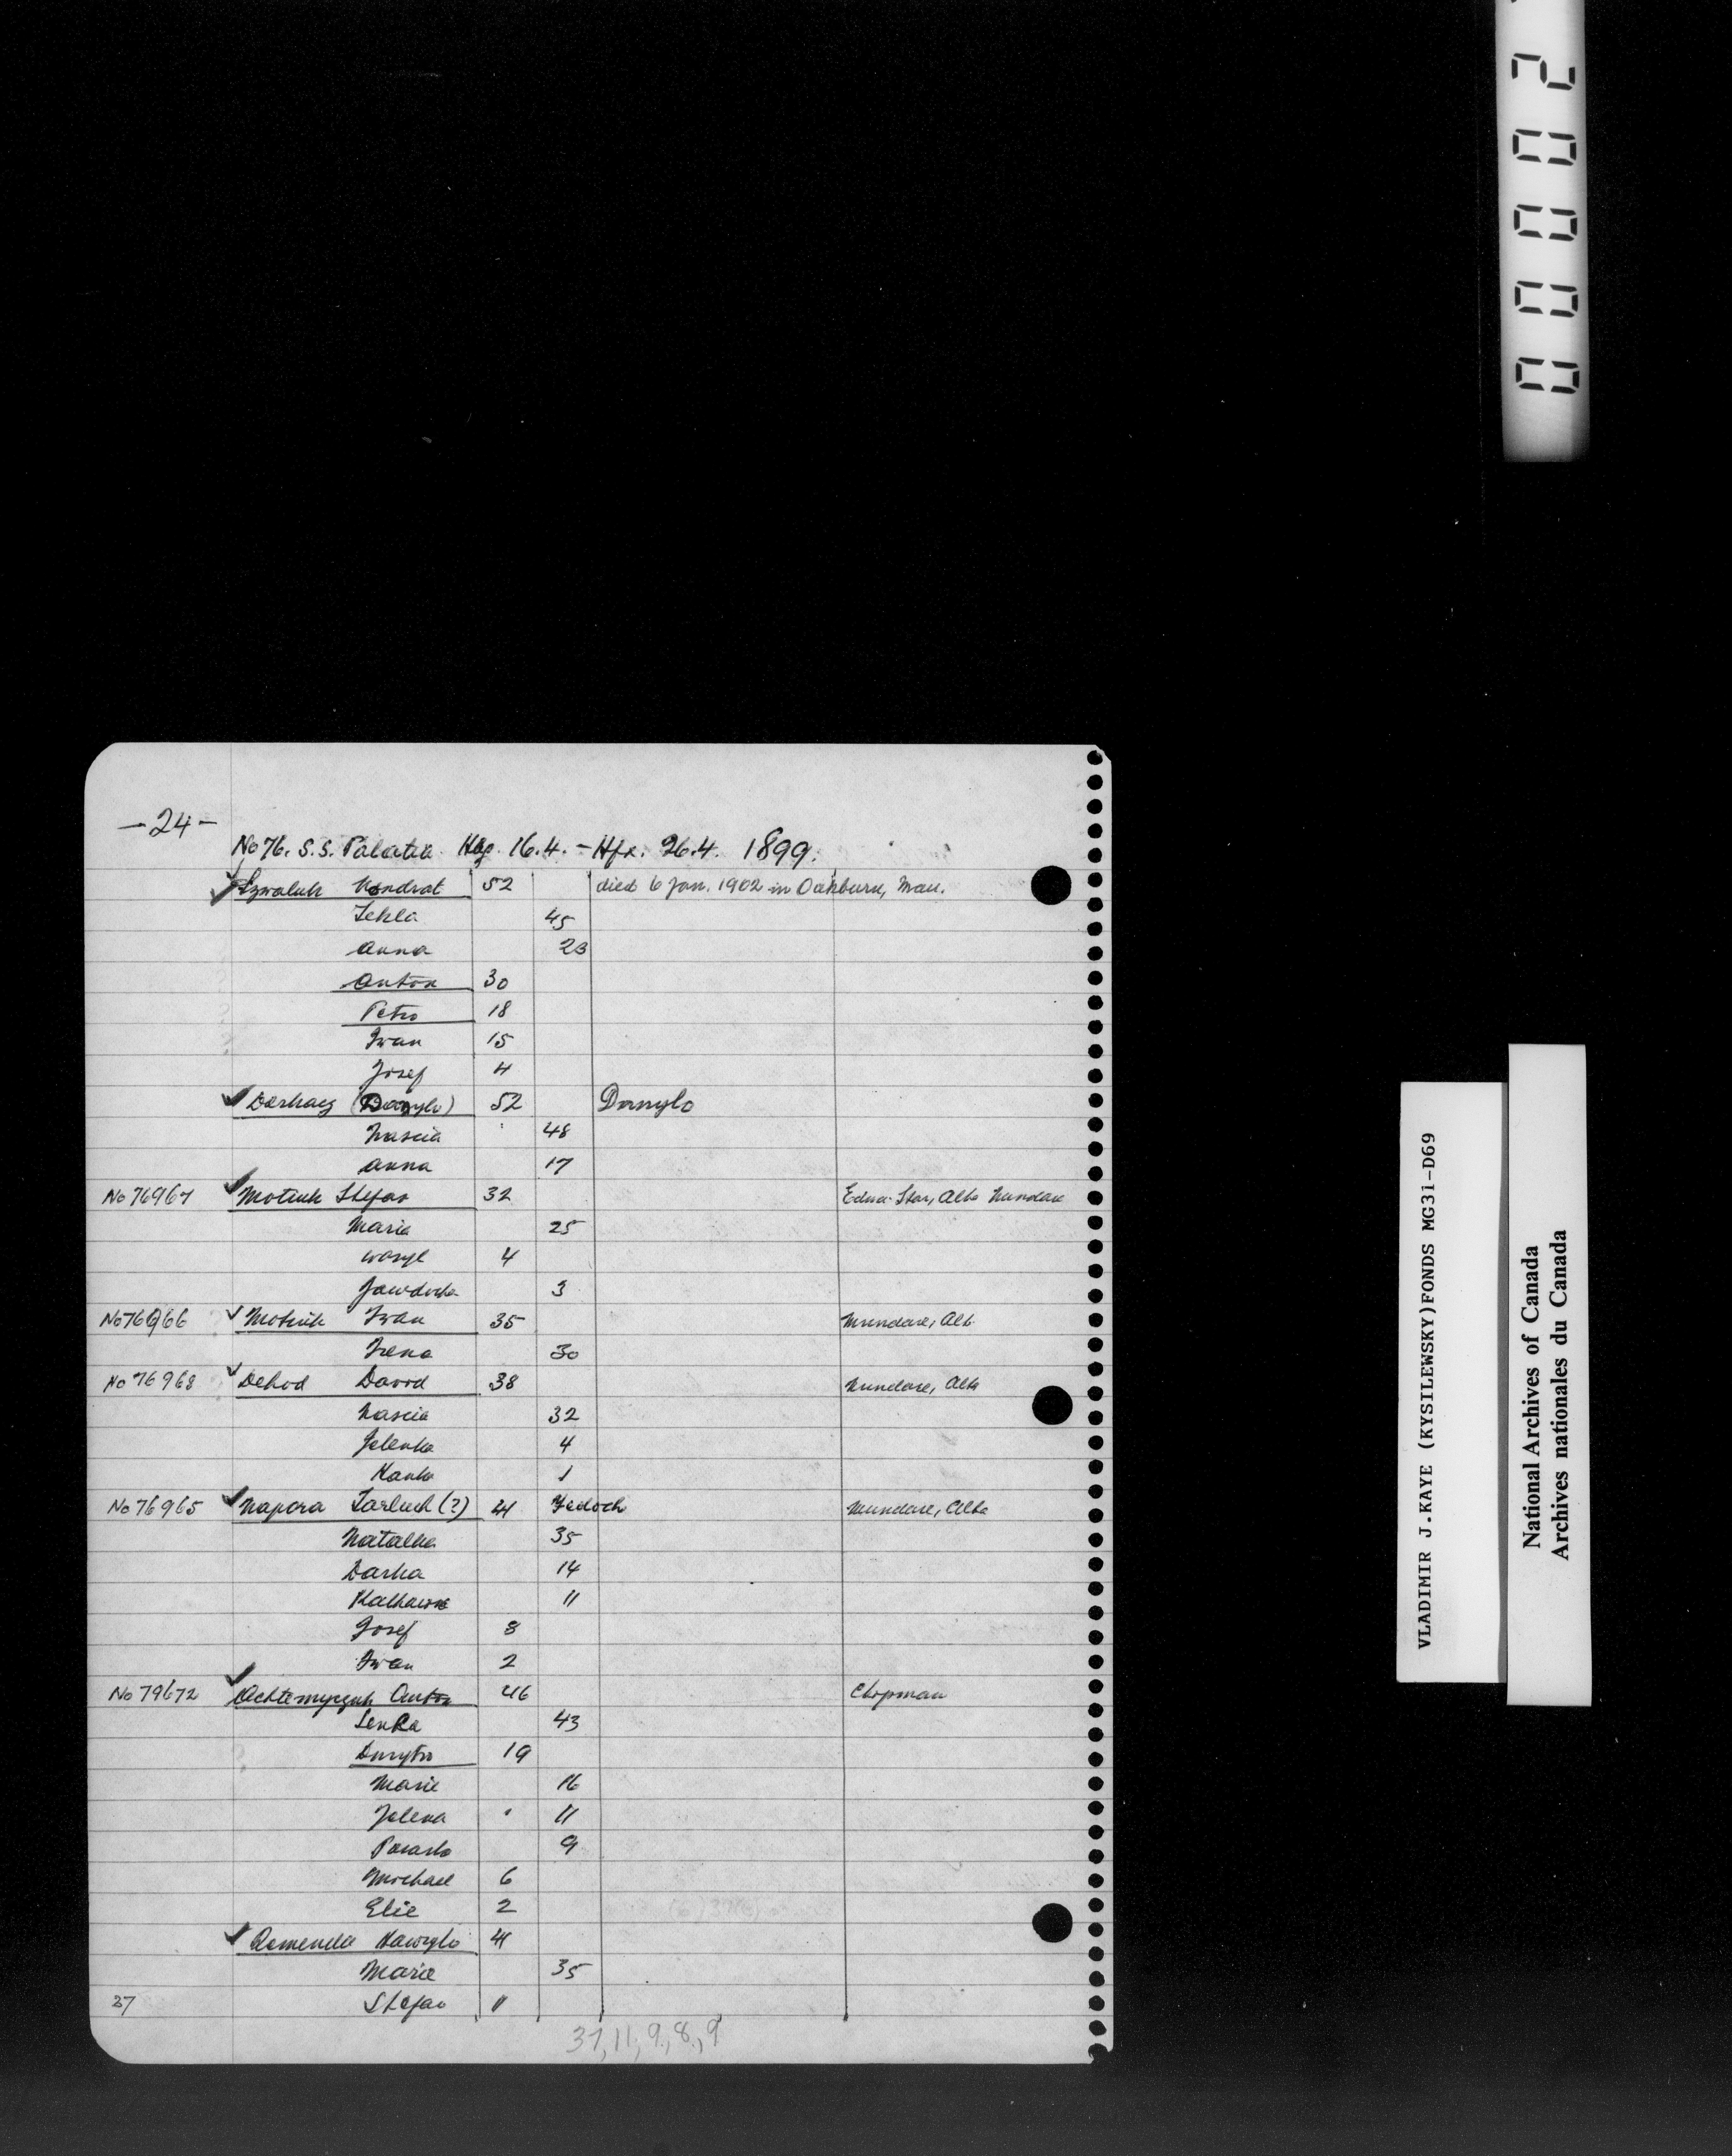 0 0 0 0 2
-24-
No 76. S.S. Palatia Hbg. 16.4. - Hfx. 26.4. 1899.
Kondrat 52 died 6 Jan. 1902 in Oakburn, Man.
Tekla 45
Anna 23
Anton 30
Petro 18
Iwan 15
Josef 4
(Danylo) 52 Danylo
Nascia 48
Anna 17
No 76967 Motiuk Stefan 32 Edna-Star, Alta Mundare
Maria 25
Wasyl 4
Jawdocha 3
No 76966 Motiuk Iwan 35 Mundare, Alb.
Irena 30
No 76968 Dehod David 38 Mundare, Alta
Nascia 32
Jelenka 4
Hanka 1
No 76965 Napora (?) 41 Mundare, Alta
Natalka 35
Darka 14
11
Josef 8
Iwan 2
No 79672 Achtemyczuk Anton 46 Chipman
Senka 43
Dmytro 19
Marie 16
Jelena 11
Paraska 9
Michael 6
Elie 2
Romenda Hawrylo 41
Marie 35
Stefan 11
37
37, 11, 9, 8, 9
VLADIMIR J.KAYE (KYSILEWSKY)FONDS MG31-D69
National Archives of Canada
Archives nationales du Canada